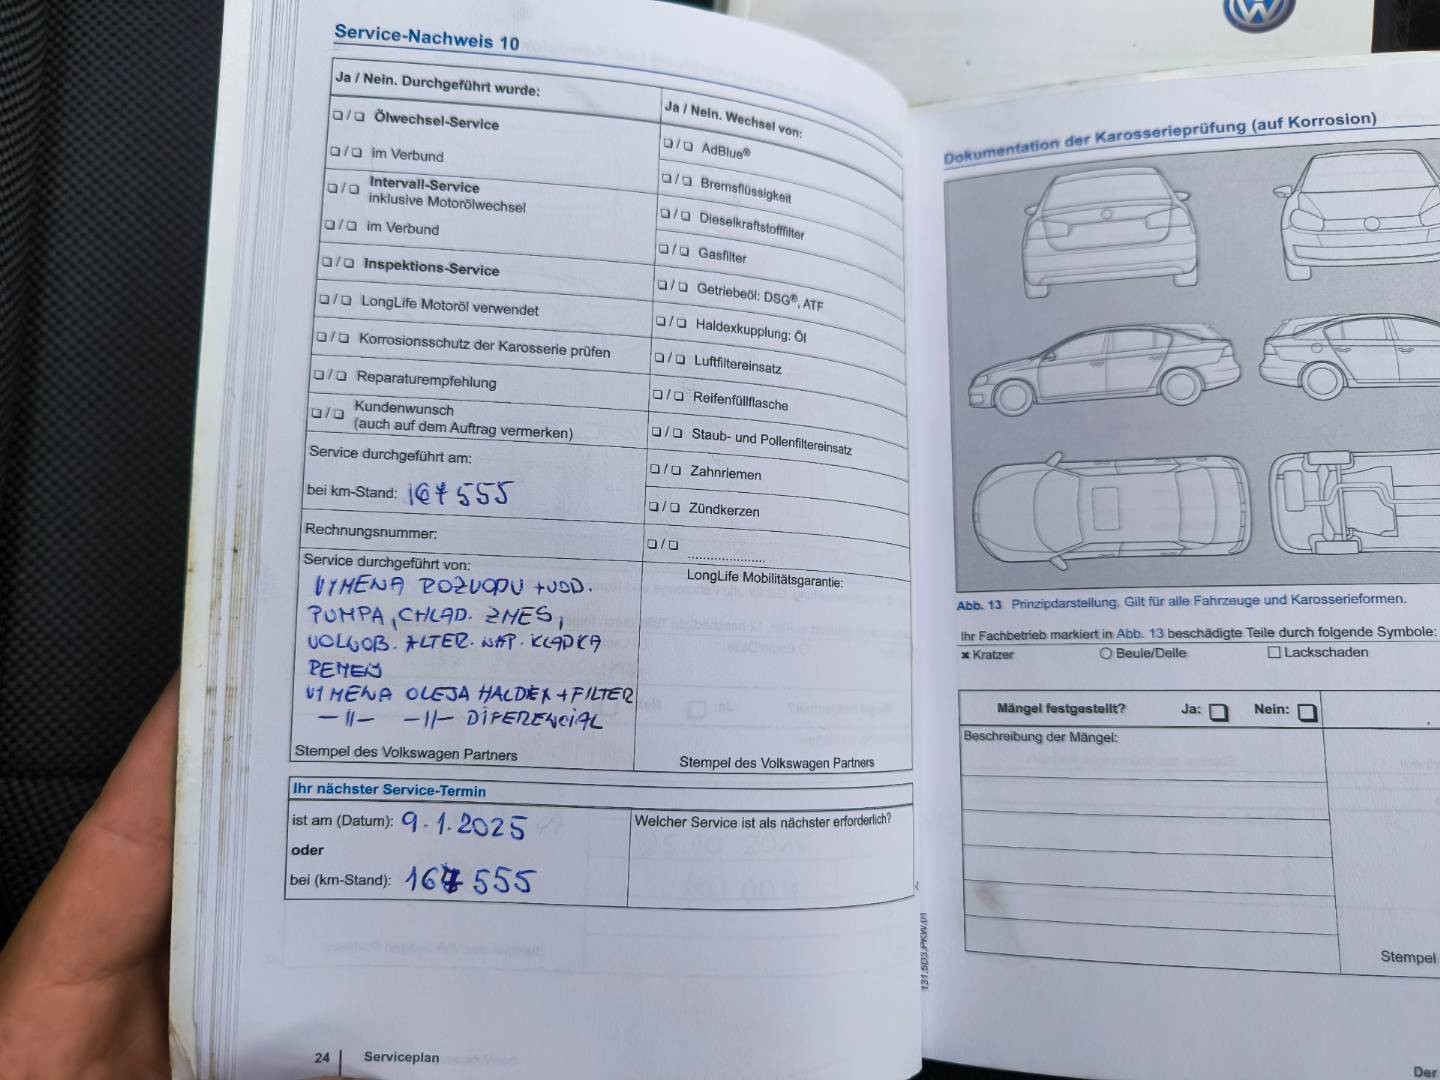 Service-Nachweis 10
Ja / Nein. Durchgeführt wurde:
❏ / ❏ Ölwechsel-Service
❏ / ❏ im Verbund
❏ / ❏ Intervall-Service
inklusive Motorölwechsel
❏ / ❏ im Verbund
❏ / ❏ Inspektions-Service
❏ / ❏ LongLife Motoröl verwendet
❏ / ❏ Korrosionsschutz der Karosserie prüfen
❏ / ❏ Reparaturempfehlung
❏ / ❏ Kundenwunsch
(auch auf dem Auftrag vermerken)
Service durchgeführt am:
bei km-Stand: 167 555
Rechnungsnummer:
Service durchgeführt von:
VYMENA ROZVODU + VOD.
PUMPA, CHLAD. ZMES,
VOLNOB. ALTER. NAP. KLADKA
REMEN
VYMENA OLEJA HALDEX + FILTER
—||— —||— DIFERENCIAL
Stempel des Volkswagen Partners
Ja / Nein. Wechsel von:
❏ / ❏ AdBlue®
❏ / ❏ Bremsflüssigkeit
❏ / ❏ Dieselkraftstofffilter
❏ / ❏ Gasfilter
❏ / ❏ Getriebeöl: DSG®, ATF
❏ / ❏ Haldexkupplung: Öl
❏ / ❏ Luftfiltereinsatz
❏ / ❏ Reifenfüllflasche
❏ / ❏ Staub- und Pollenfiltereinsatz
❏ / ❏ Zahnriemen
❏ / ❏ Zündkerzen
❏ / ❏ .....................
LongLife Mobilitätsgarantie:
Stempel des Volkswagen Partners
Ihr nächster Service-Termin
ist am (Datum): 9.1.2025
oder
bei (km-Stand): 167 555
Welcher Service ist als nächster erforderlich?
24 Serviceplan
Dokumentation der Karosserieprüfung (auf Korrosion)
Abb. 13 Prinzipdarstellung. Gilt für alle Fahrzeuge und Karosserieformen.
Ihr Fachbetrieb markiert in Abb. 13 beschädigte Teile durch folgende Symbole:
× Kratzer ○ Beule/Delle □ Lackschaden
Mängel festgestellt? Ja: ❏ Nein: ❏
Beschreibung der Mängel:
Stempel
131.5D3.PKW.01
Der